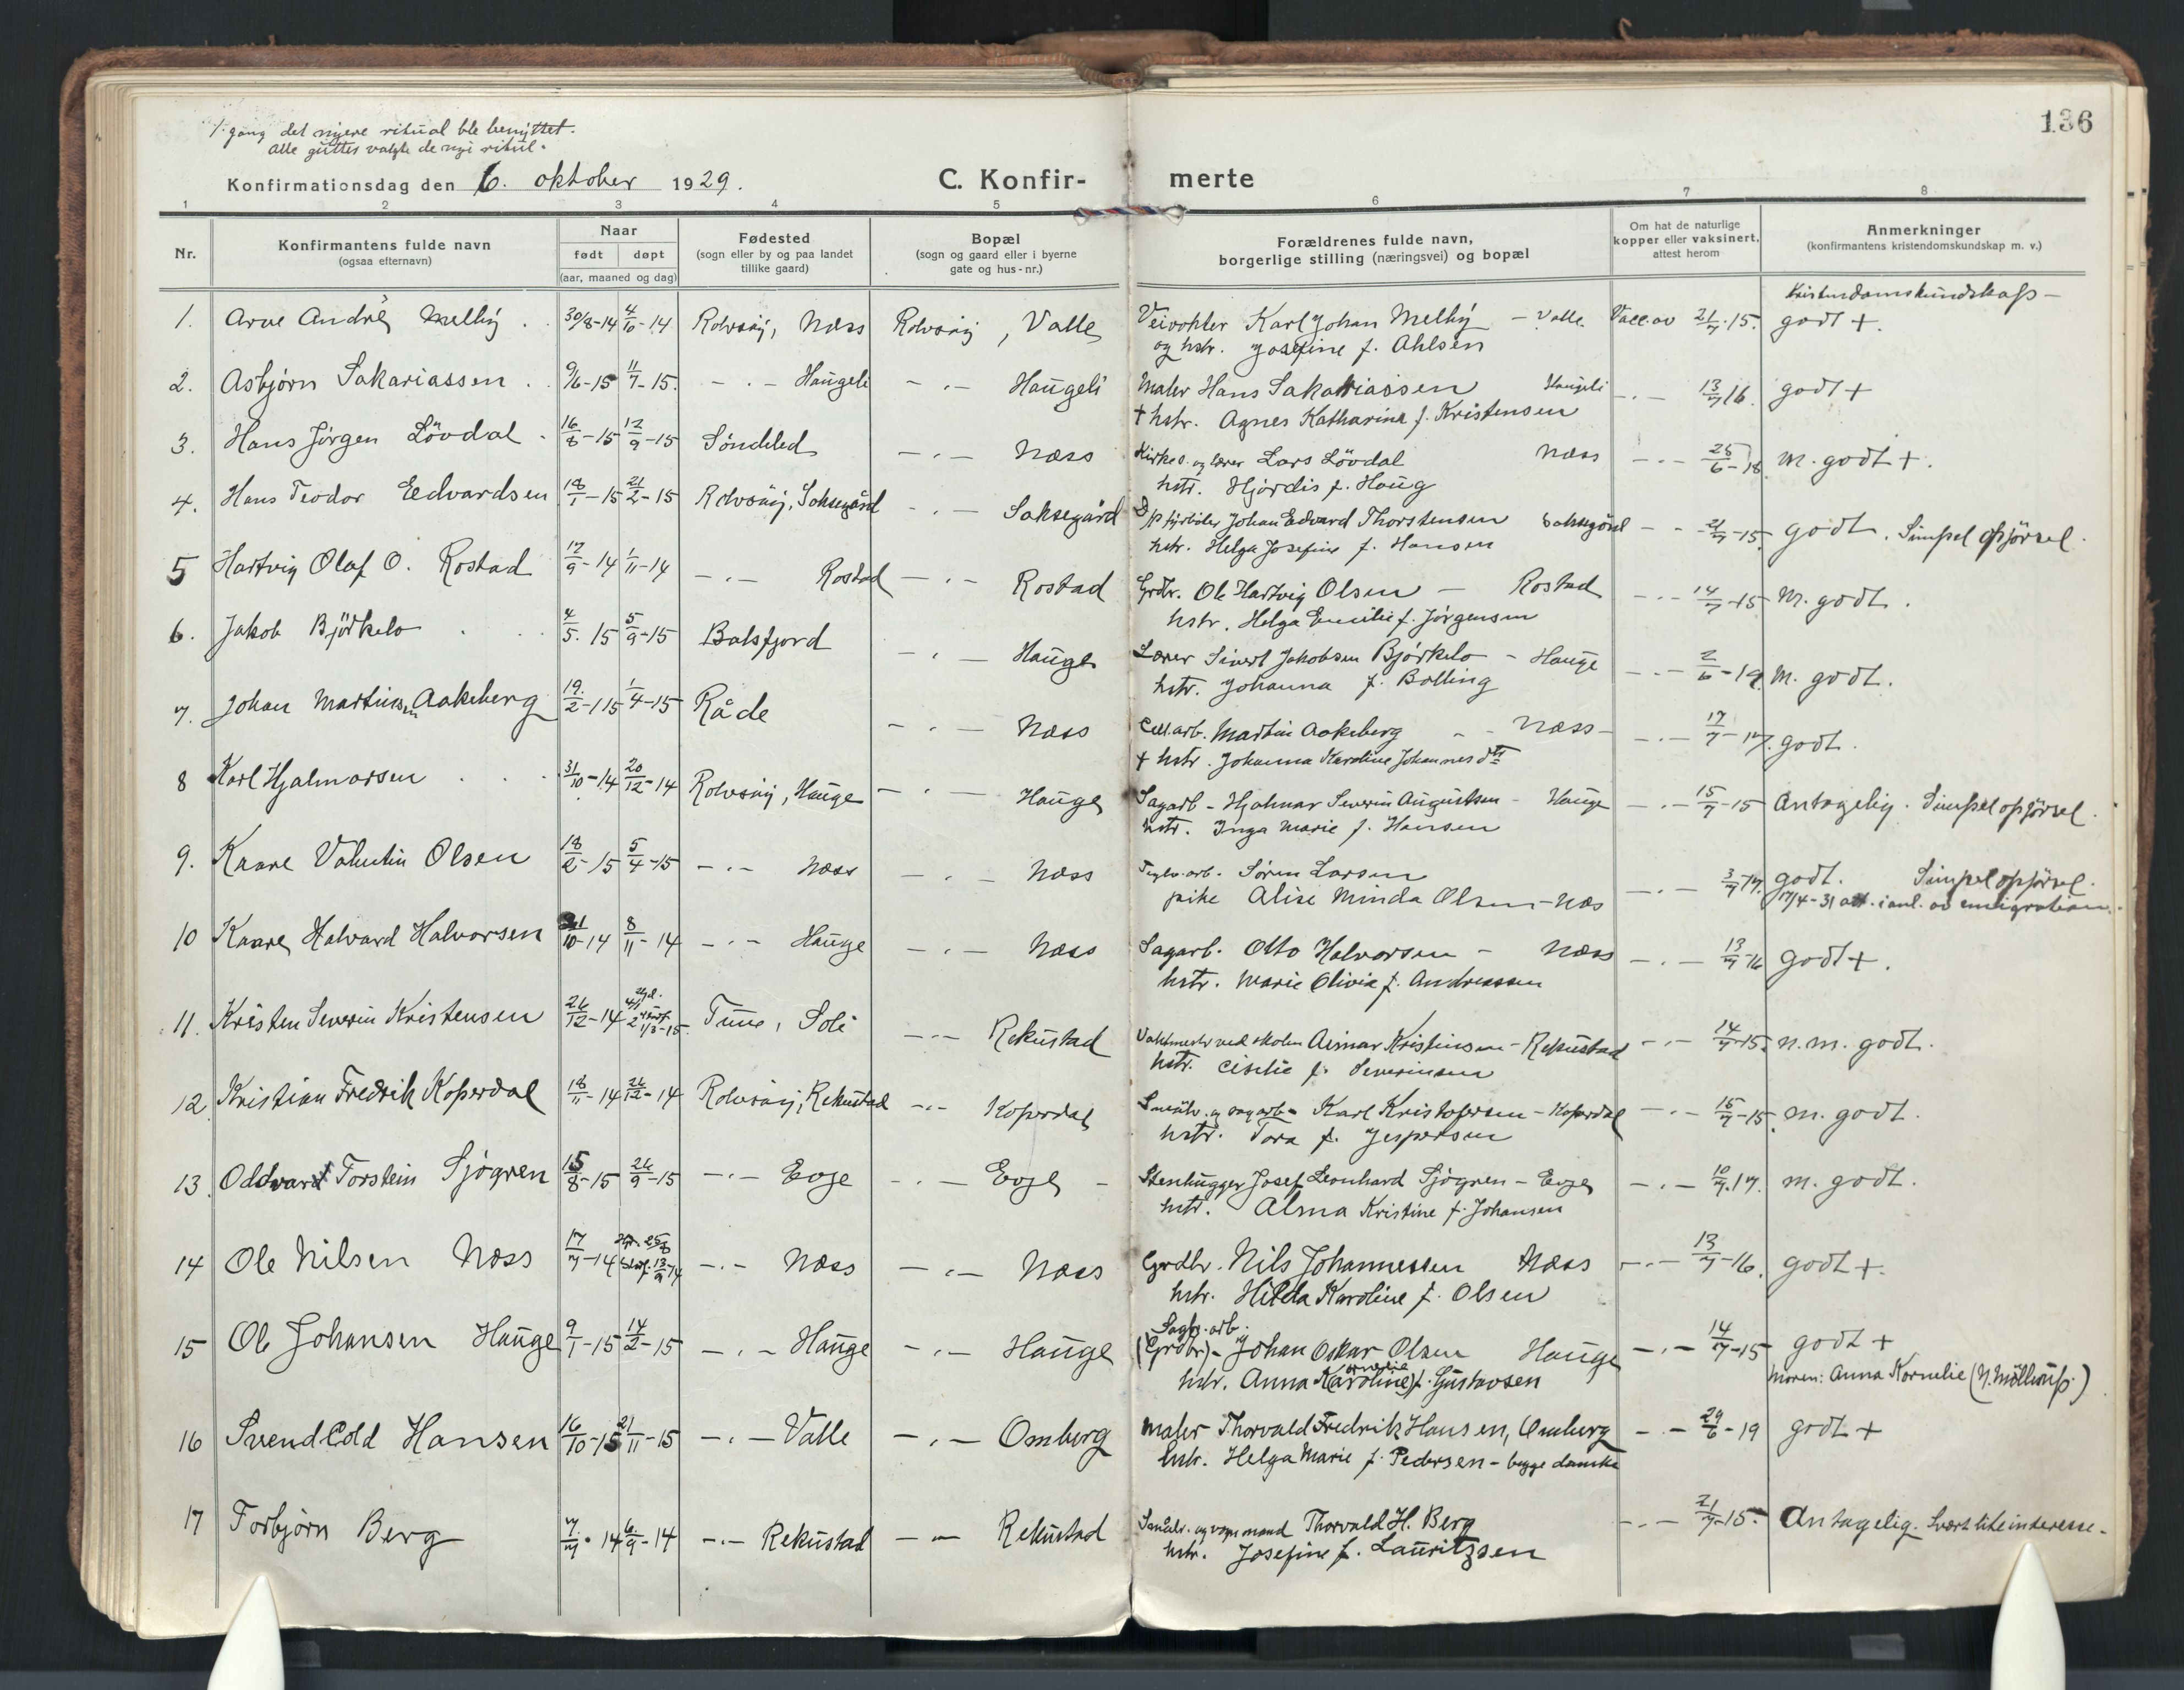 1. gang det nyere ritual ble benyttet.
alle gutter valgte de nye ritual.
136
Konfirmationsdag den 6. oktober 1929.
C. Konfir-merte
1 2 3 4 5 6 7 8
Nr.
Konfirmantens fulde navn
(ogsaa efternavn)
Naar
født døpt
(aar, maaned og dag)
Fødested
(sogn eller by og paa landet
tillike gaard)
Bopæl
(sogn og gaard eller i byerne
gate og hus-nr.)
Forældrenes fulde navn,
borgerlige stilling (næringsvei) og bopæl
Om hat de naturlige
kopper eller vaksinert,
attest herom
Anmerkninger
(konfirmantens kristendomskundskap m. v.)
Kristendomskundskap -
1. Arne André Melby . 30/8-14 4/10-14 Rolvsøy, Næss Rolvsøy, Valle Veivokter Karl Johan Melby - Valle Vacc. av 21/7-15. godt +.
og hstr. Josefine f. Ahlsen
2. Asbjørn Sakariassen . 9/6-15 11/7-15. -"- Haugeli -"- Haugeli Maler Hans Sakariassen Haugeli -"- 13/7 16. godt +
+ hstr. Agnes Katharina f. Kristensen
3. Hans Jørgen Lövdal . 16/8-15 12/9-15 Söndeled -"- Næss Kirkes. og lærer Lars Lövdal Næss -"- 25/6-18. m. godt +.
hstr. Hjørdis f. Haug
4. Hans Teodor Edvardsen 18/1-15 21/2-15 Rolvsøy, Saksegård -"- Saksegård D/p fyrböter Johan Edvard Thorstensen Saksegård -"- 21/7-15. godt. Simpel opførsel.
hstr. Helga Josefine f. Hansen
5 Hartvig Olaf O. Rostad 17/9-14 1/11-14 -"- Rostad -"- Rostad Grdbr. Ole Hartvig Olsen - Rostad -"- 14/7-15 M. godt.
hstr. Helga Emilie f. Jörgensen
6. Jakob Björkelo . . 4/5. 15 5/9-15 Balsfjord -"- Hauge Lærer Sivert Jakobsen Björkelo - Hauge -"- 2/6-19. M. godt.
hstr. Johanna f. Bolling
7. Johan Martinsen Aakeberg 19/2-15 1/4-15 Råde -"- Næss Cell.arb. Martin Aakeberg - Næss - -"- 17/7-17. godt.
+ hstr. Johanna Karoline Johannesdtr
8 Karl Hjalmarsen . . 31/10-14 20/12-14 Rolvsøy, Hauge -"- Hauge Sagarb - Hjalmar Severin Augustsen - Hauge -"- 15/7-15 Antagelig. Simpel opførsel.
hstr. Inga Marie f. Hansen
9. Kaare Valentin Olsen 18/2-15 5/4-15 -"- Næss -"- Næss Teglv.arb. Sören Larsen -"- 3/7-17. godt. Simpel opførsel.
pike Alise Minda Olsen - Næs 17/4-31 att. i anl. av emigration.
10 Kaare Halvard Halvorsen 31/10-14 8/11-14 -"- Hauge -"- Næss Sagarb. Otto Halvorsen - Næss -"- 13/7-16 godt +.
hstr. Marie Olivia f. Andreassen
11. Kristen Severin Kristensen 26/12-14 Tune, Soli -"- Rekustad Vaktmester ved skolen Aimar Kristensen - Rekustad -"- 14/7-15. n. m. godt.
hstr. Cisilie f. Severinsen
12. Kristian Fredrik Koperdal 18/11-14 26/12-14 Rolvsøy, Rekustad -"- Koperdal Småbr. og sagarb - Karl Kristofersen - Koperdal -"- 15/7-15. m. godt.
hstr. Tora f. Jespersen
13. Oddvar Torstein Sjögren 15/8-15 26/9-15 -"- Evje -"- Evje - Stenhugger Josef Leonhard Sjögren - Evje -"- 10/7.17. m. godt.
hstr. Alma Kristine f. Johansen
14 Ole Nilsen Næss 17/7-14 -"- Næss -"- Næss Grdbr. Nils Johannessen Næss -"- 13/7-16. godt +.
hstr. Hilda Karoline f. Olsen
Sagbr. arb.
15 Ole Johansen Hauge 9/1-15 14/2-15 -"- Hauge -"- Hauge (Grdbr) - Johan Oskar Olsen Hauge -"- 14/7-15 godt +
hstr. Anna K(aroline) ornelie f. Gustavsen Moren: Anna Kornelie (N. Möllerup.)
16 Svend Cold Hansen 16/10-15 21/11-15 -"- Valle -"- Omberg Maler Thorvald Fredrik Hansen, Omberg -"- 29/6-19 godt +
hstr. Helga Marie f. Pedersen - begge danske
17 Torbjörn Berg 7/7. 14 6/9-14 -"- Rekustad -"- Rekustad Småbr. og vognmand Thorvald H. Berg -"- 21/7-15. Antagelig. Svært lite interesse.
hstr. Josefine f. Lauritzsen